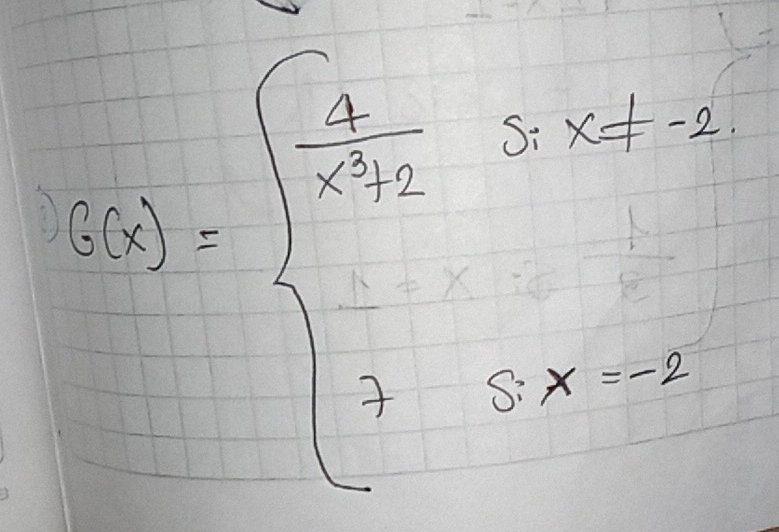 G(x) = { 4/(x³+2) Si x ≠ -2.
7 Si x = -2